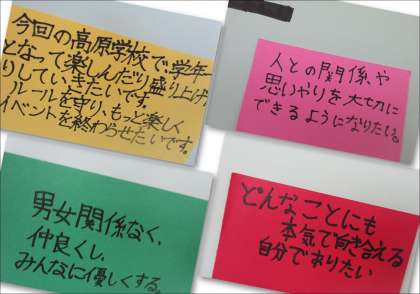 今回の高原学校で、学年
となって楽しんだり盛り上げ
りしていきたいです。
ルールを守り、もっと楽しく
イベントを終わらせたいです。
人との関係や
思いやりを大切に
できるようになりたい。
男女関係なく、
仲良くし、
みんなに優しくする。
どんなことにも
本気で向き合える
自分でありたい